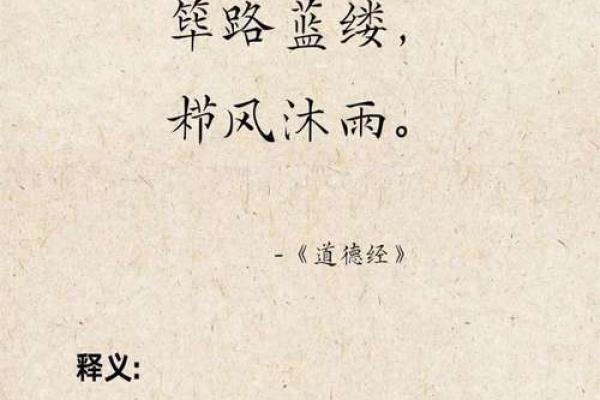 筚路蓝缕，
栉风沐雨。
-《道德经》
释义: